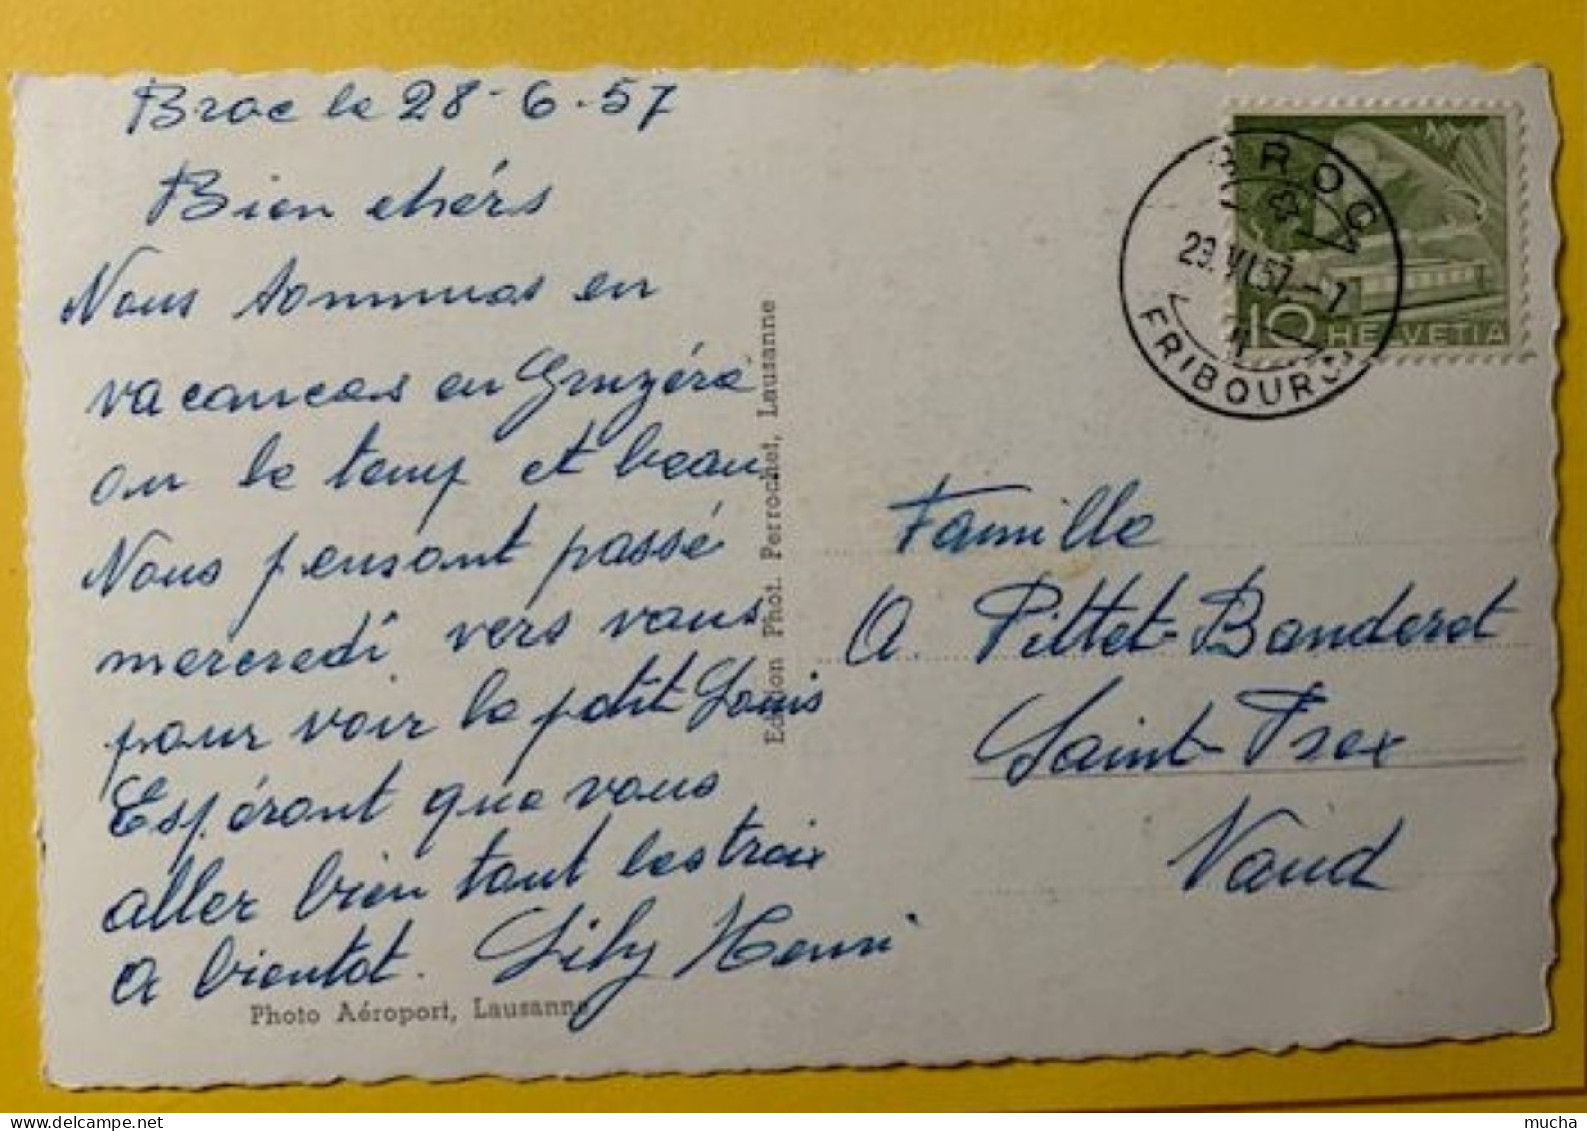 Broc le 28-6.57
Bien chérs
Nous sommes en
vacances en Gruyéra
ou le temp et beau
Nous pensont passé
mercredi vers vous
pour voir le petit Louis
Espéront que vous
aller bien tout les troix
a bientot. Lily Henri
Photo Aéroport, Lausanne
Edition Phot. Perrochet, Lausanne
BROC
29.VI.57.-7
FRIBOURG
10 HELVETIA
Famille
A. Pittet-Banderet
Saint-Prex
Vaud
mucha